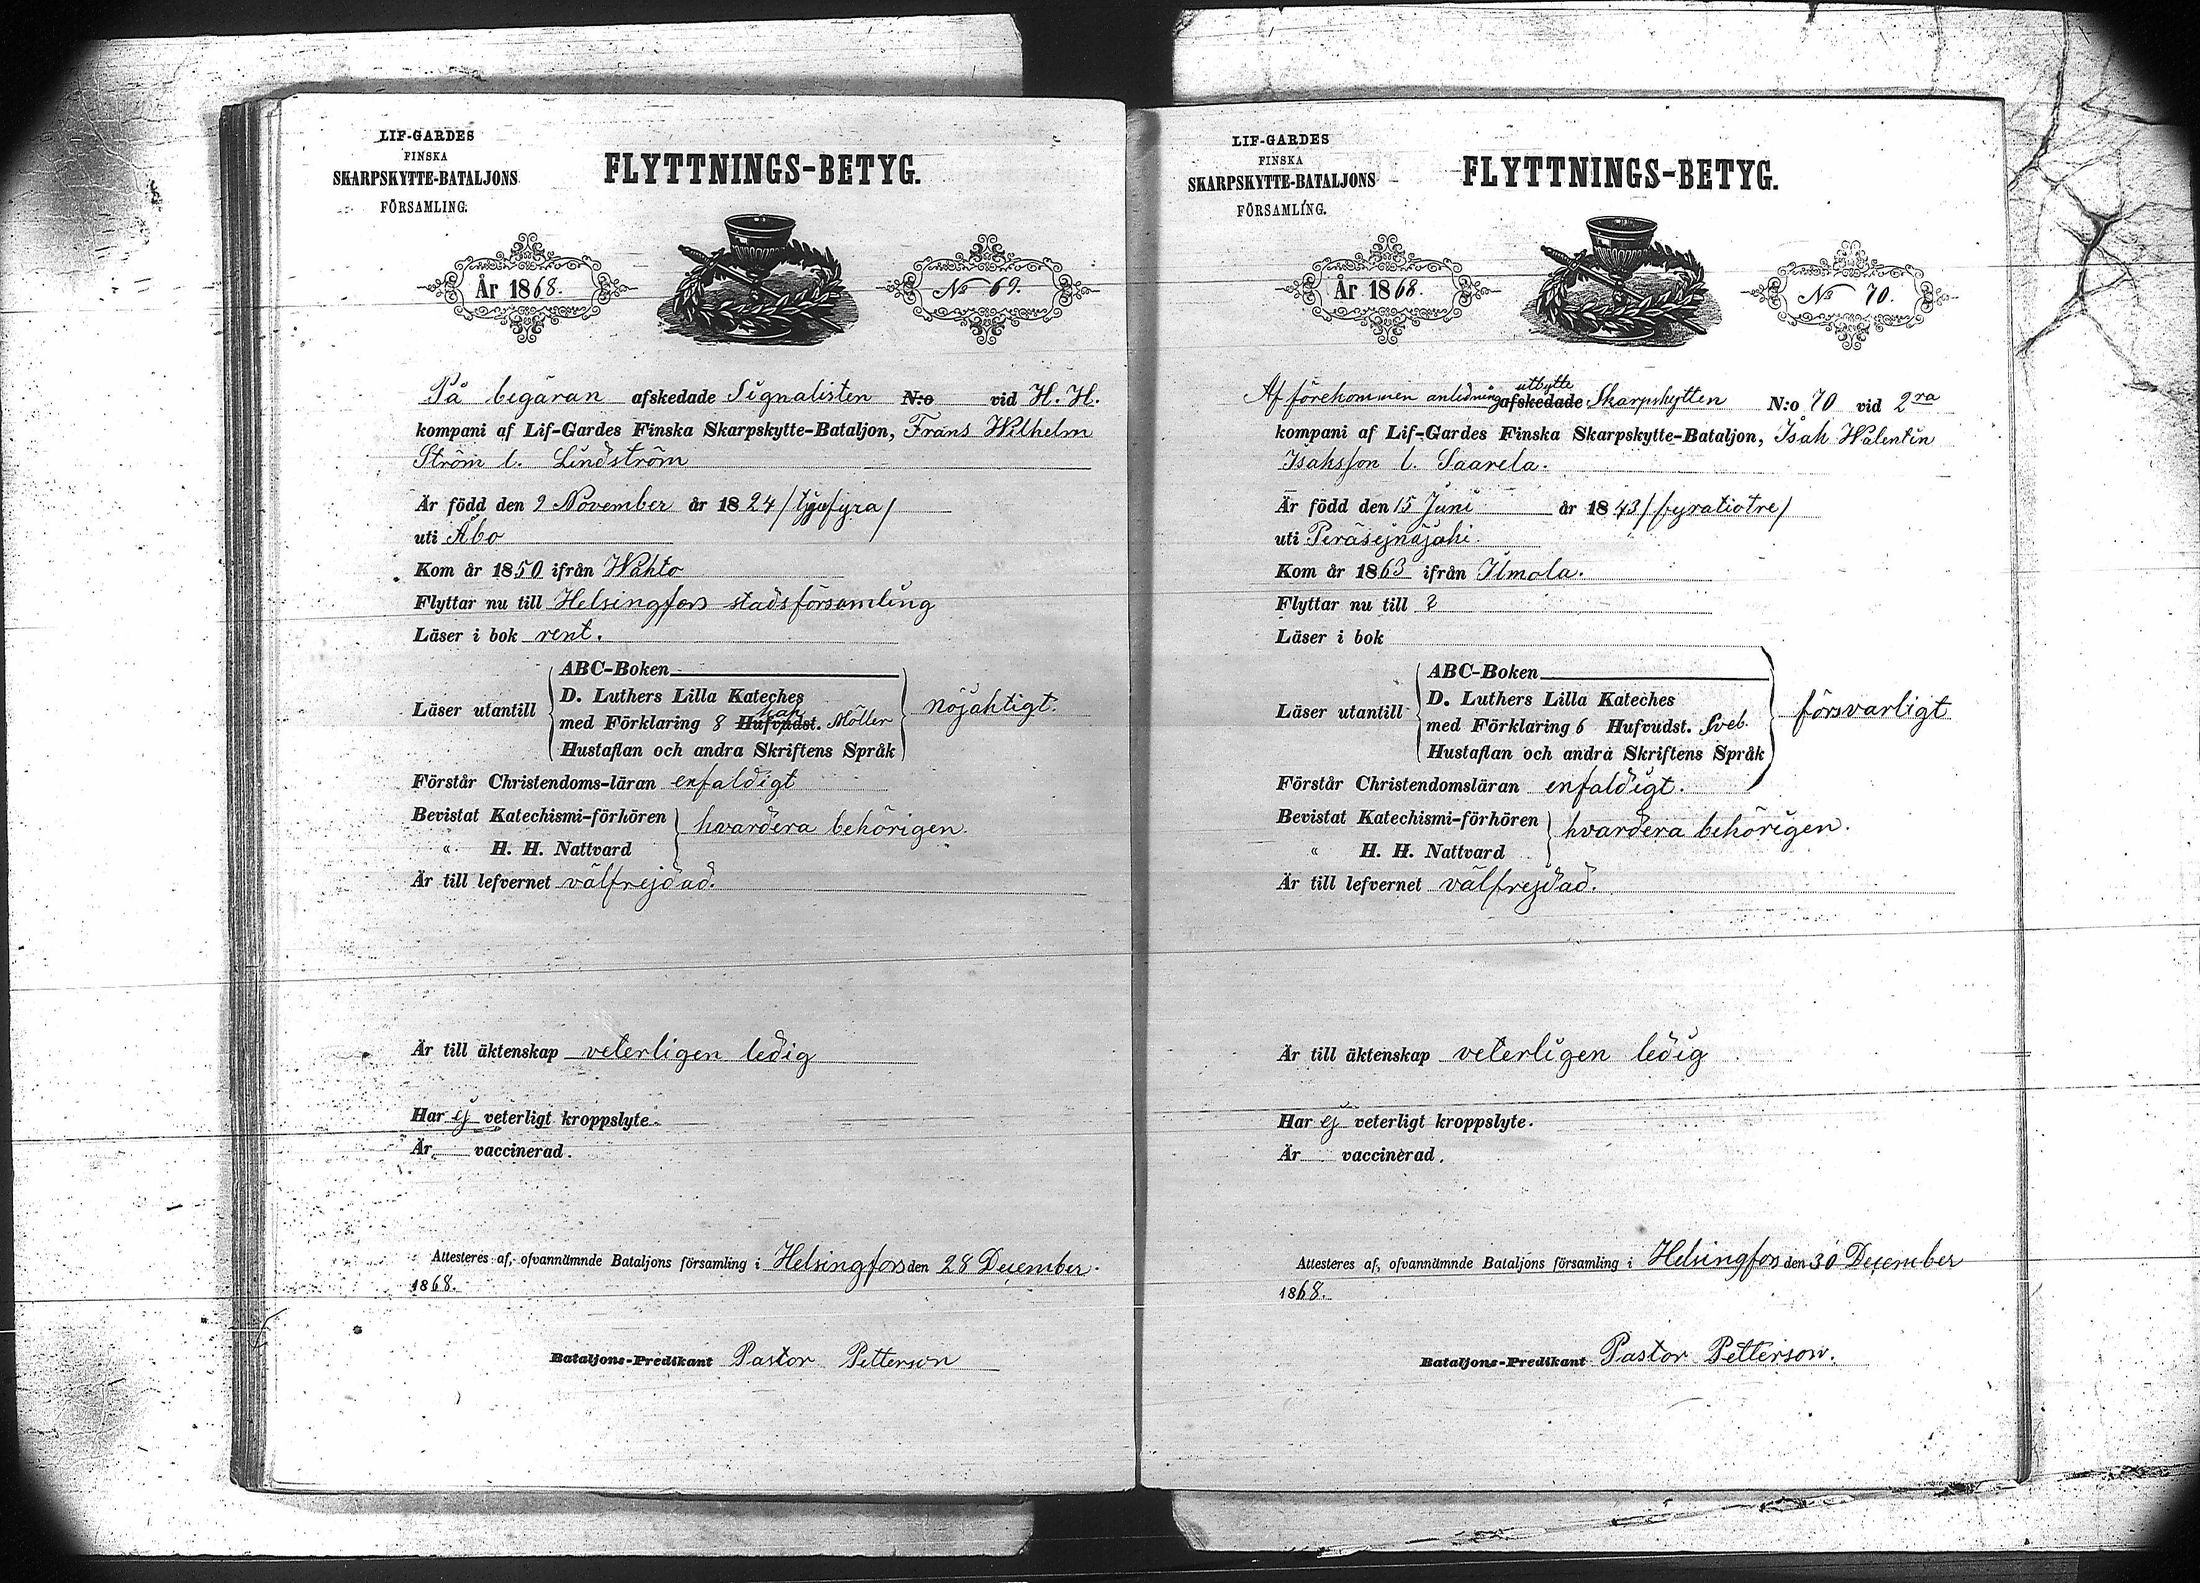 LIF-GARDES
FINSKA
SKARPSKYTTE-BATALJONS
FÖRSAMLING.
FLYTTNINGS-BETYG.
År 1868.
No 69.
På begäran afskedade Signalisten N:o vid H. H.
kompani af Lif-Gardes Finska Skarpskytte-Bataljon, Frans Wilhelm
Ström l. Lindström
Är född den 2 November år 1824 /tjugufyra/
uti Åbo
Kom år 1850 ifrån Wahto
Flyttar nu till Helsingfors stadsförsamling
Läser i bok rent.
Läser utantill
ABC-Boken
D. Luthers Lilla Kateches
med Förklaring 8 Hufvudst. Möller
Hustaflan och andra Skriftens Språk
nöjaktigt.
Förstår Christendoms-läran enfaldigt
Bevistat Katechismi-förhören
" H. H. Nattvard
hvardera behörigen.
Är till lefvernet välfrejdad.
Är till äktenskap veterligen ledig
Har ej veterligt kroppslyte.
Är vaccinerad.
Attesteres af, ofvannämnde Bataljons församling i Helsingfors den 28 December
1868.
Bataljons-Predikant Pastor Petterson
LIF-GARDES
FINSKA
SKARPSKYTTE-BATALJONS
FÖRSAMLING.
FLYTTNINGS-BETYG.
År 1868.
No 70.
Af förekommen anledning afskedade utbytte Skarpskytten N:o 70 vid 2ra
kompani af Lif-Gardes Finska Skarpskytte-Bataljon, Isak Walentin
Isaksson l. Saarela.
Är född den 15 Juni år 1843 /fyratiotre/
uti Peräsejnäjoki.
Kom år 1863 ifrån Ilmola.
Flyttar nu till ?
Läser i bok
Läser utantill
ABC-Boken
D. Luthers Lilla Kateches
med Förklaring 6 Hufvudst. Sveb.
Hustaflan och andra Skriftens Språk
försvarligt
Förstår Christendomsläran enfaldigt.
Bevistat Katechismi-förhören
" H. H. Nattvard
hvardera behörigen.
Är till lefvernet välfrejdad.
Är till äktenskap veterligen ledig
Har ej veterligt kroppslyte.
Är vaccinerad.
Attesteres af, ofvannämnde Bataljons församling i Helsingfors den 30 December
1868.
Bataljons-Predikant Pastor Petterson.